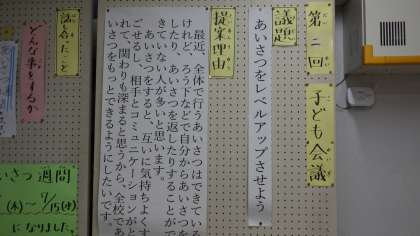 第二回 子ども会議
議題
あいさつをレベルアップさせよう。
提案理由
最近、全体で行うあいさつはできている
けれど、ろう下などで自分からあいさつを
したり、あいさつを返したりすることがで
きていない人が多いと思います。
あいさつをすると、互いに気持ちよくす
ごせるし、相手とコミュニケーションがと
れて、関わりも深まると思うから、全校であ
いさつをもっとできるようにしたいです。
話し合うこと
どんな事をするか
さつ週間
(木)～7/15(水)
になりました。